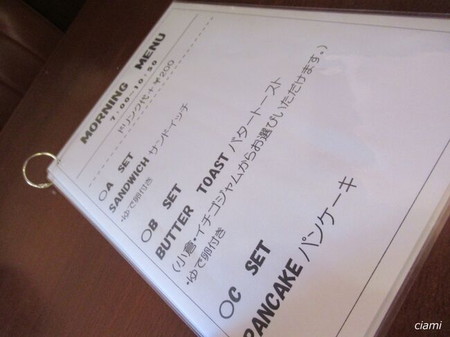 MORNING MENU
7:00~10:50
ドリンク代+¥200
○A SET
SANDWICH サンドイッチ
・ゆで卵付き
○B SET
BUTTER TOAST バタートースト
(小倉・イチゴジャムからお選びいただけます。)
・ゆで卵付き
○C SET
PANCAKE パンケーキ
ciami